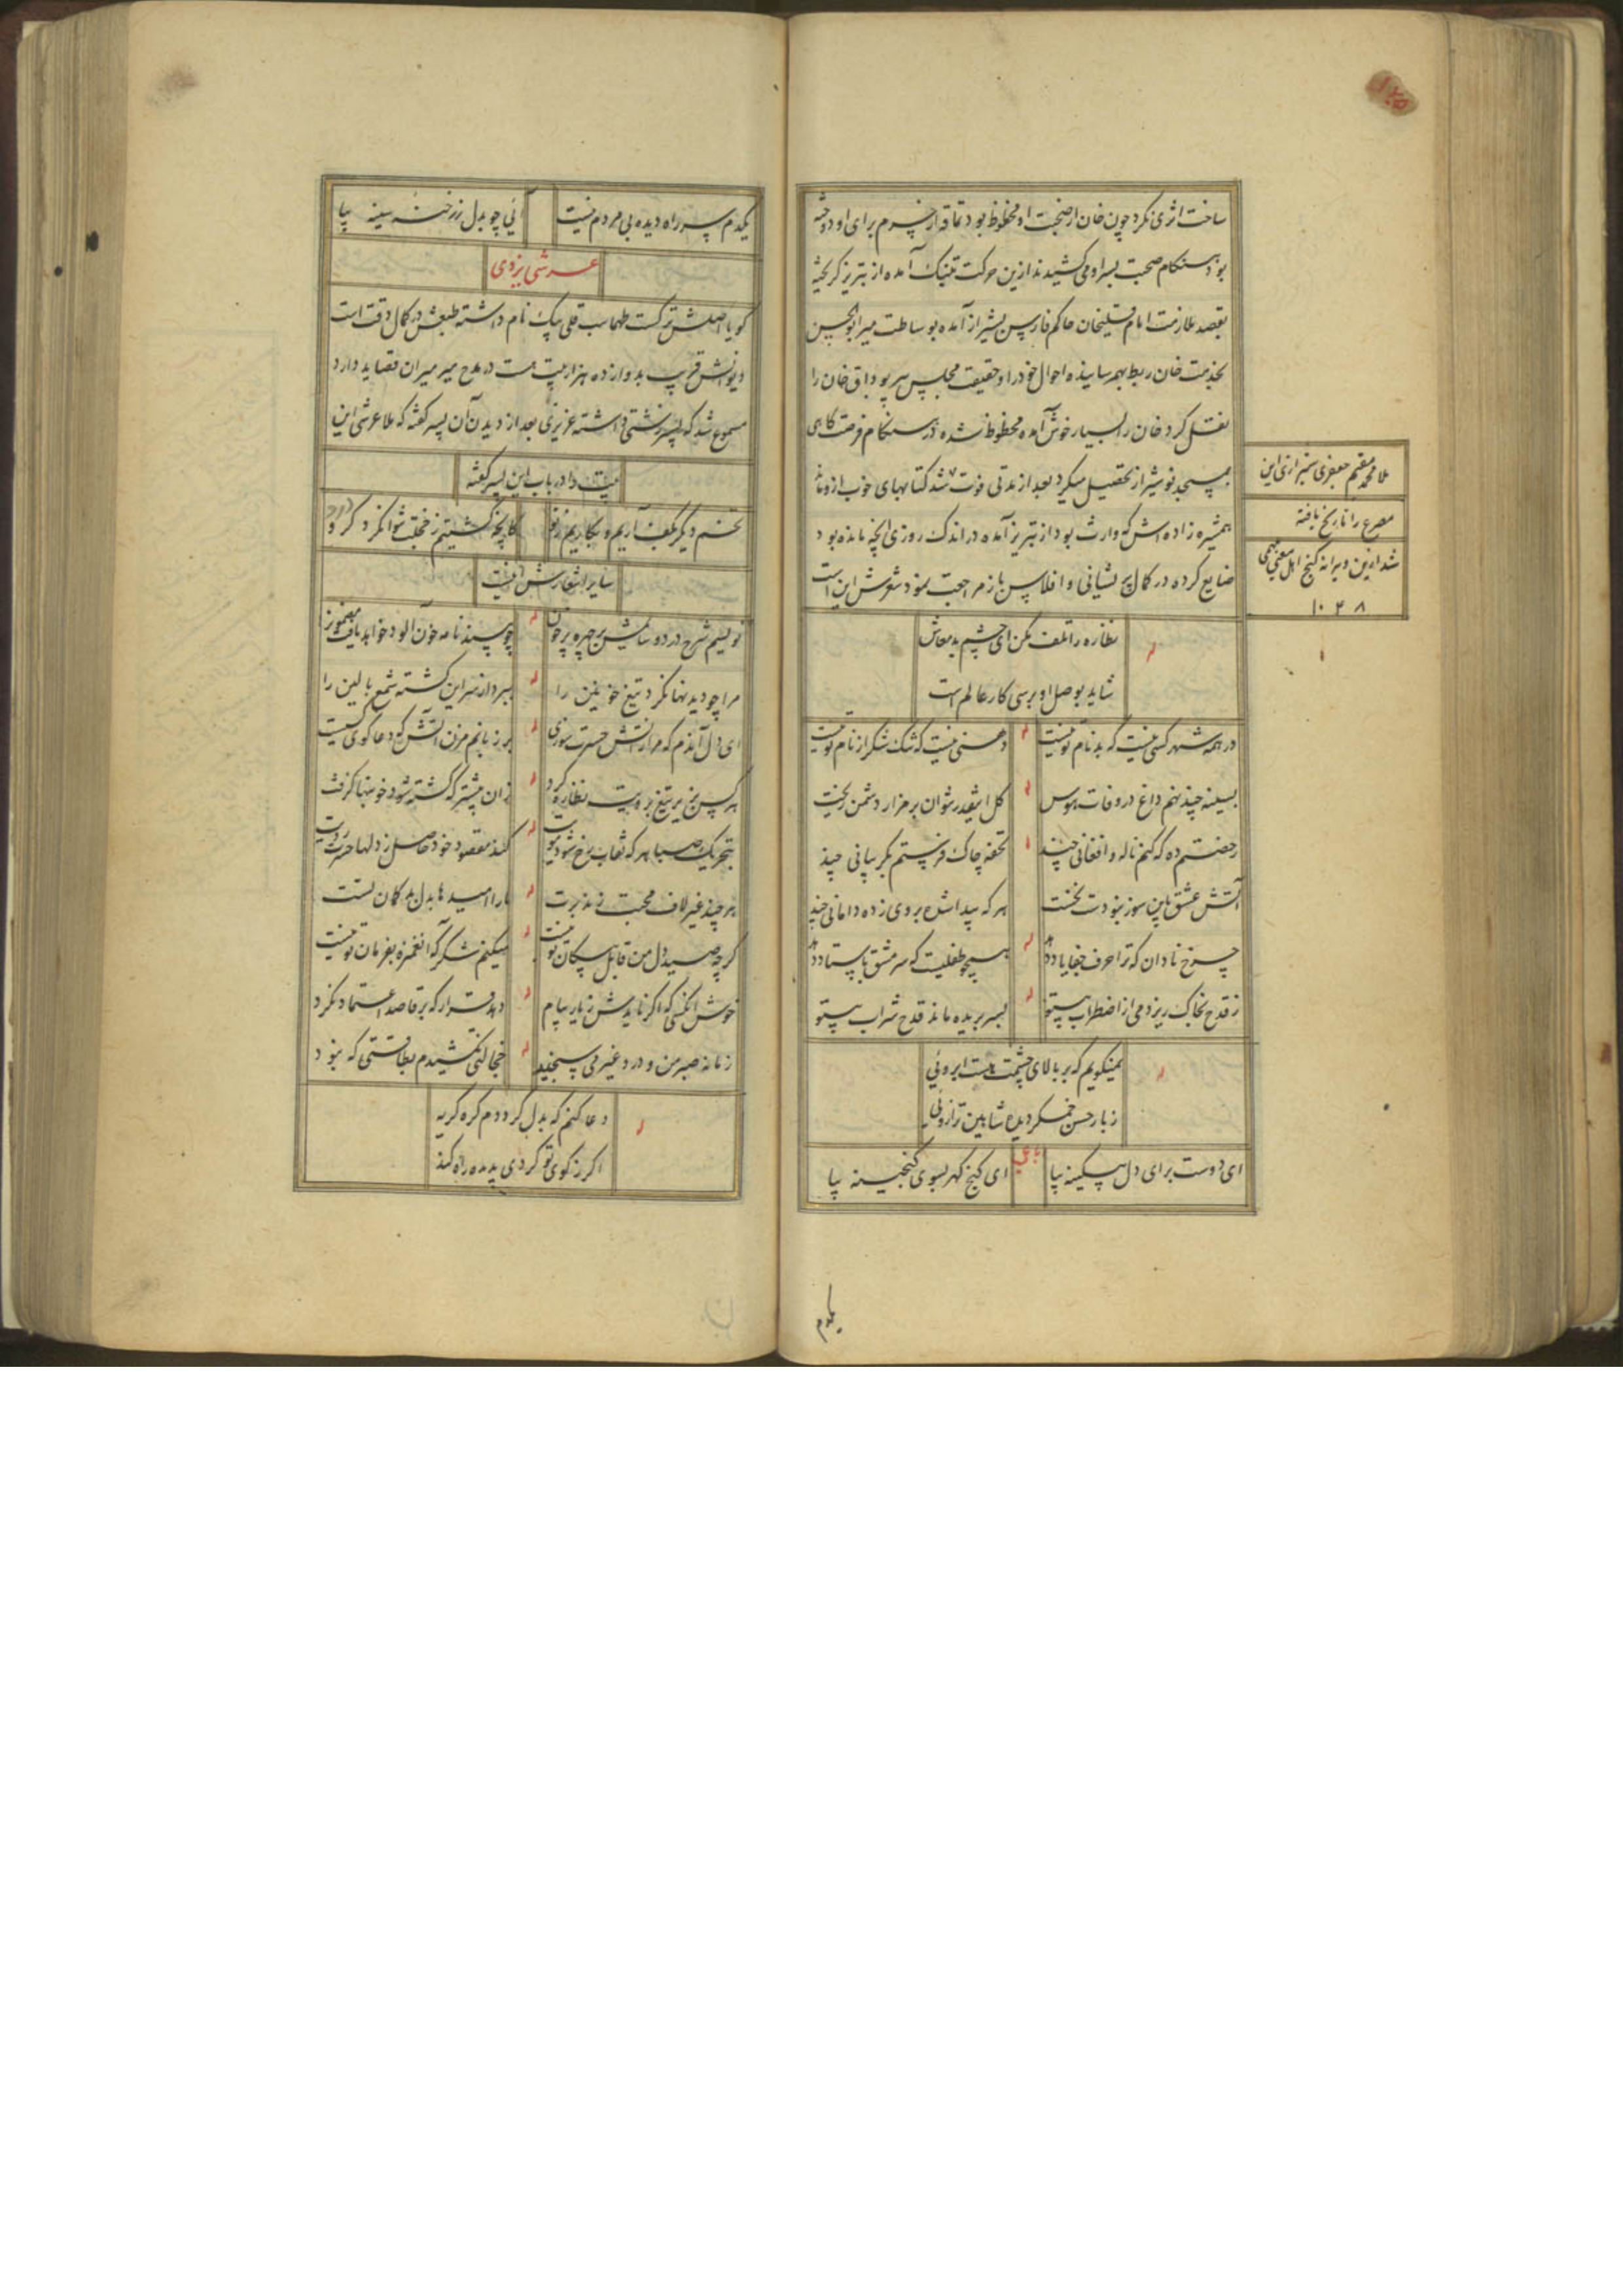 ساخت اثری نکرد چون خان از صحبت او محظوظ بود تماقه از خرم برای او دوخته
بود هنگام صحبت بسر او می کشیدند ازین حرکت بتنک آمده از تبریز کریخته
بقصد ملازمت امام قلیخان حاکم فارس بشیراز آمده بوساطت میر ابوالحسن
بخدمت خان ربط بهم رسانیده احوال خود را و حقیقت مجلس پیر بوداق خان را
نقل کرد خان را بسیار خوش آمده محظوظ شده در هنکام فرصت کاهی
بمسجد نو شیراز تحصیل میکرد بعد از مدتی فوت شد کتابهای خوب ازو ماند
همشیره زاده اش که وارث بود از تبریز آمده در اندک روزی آنچه مانده بود
ضایع کرده در کمال پریشانی و افلاس باز مراجعت نمود شعرش این است
ملا محمد مقیم جعفری شیرازی این
مصرع را تاریخ یافته
شد ازین ویرانه کنج اهل معنی
۱۰۴۸
نظاره را تلف مکن ای چشم بد معاش
شاید بوصل او برسی کار عالم است
در همه شهر کسی نیست که بدنام تو نیست
دهنی نیست که تنک شکر از نام تو نیست
بسینه چند نهم داغ در وفات هوس
کل اینقدر نتوان بر مزار دشمن ریخت
رخصتم ده که کنم ناله و افغانی چند
تحفه چاک فرستم بکریبانی چند
آتش عشق باین سوز نبودست نخست
هر که پیداش بروی زده دامانی چند
چرخ نادان که ترا حرف جفا یاد دهد
همچو طفلیست که سرمشق باستاد دهد
ز قدح بخاک ریزد می از اضطراب بیتو
بسر بریده ماند قدح شراب بیتو
نمیکویم که بر بالای چشمت هست ابروئی
ز بار حسن خم کردیده شاهین ترازوئی
ای دوست برای دل بیکینه بیا
رباعی
ای کنج کهر بسوی کنجینه بیا
یکدم
یکدم بسر راه دیده بی مردم نیست
آئی چو بدل ز رخنه سینه بیا
عرشی یزدی
کویا اصلش ترکست طهماسب قلی بیک نام داشته طبعش در کمال دقت است
دیوانش قریب بدوازده هزار بیت هست در مدح میر میران قصاید دارد
مسموع شد که پسر زشتی داشته عزیزی بعد از دیدن آن پسر کفته که ملا عرشی این
بیت را در باب این پسر کفته
تخم دیکر بکف آریم و بکاریم ز نو
کانچه کشتیم ز خجلت نتوان کرد درو
سایر اشعارش اینست
نویسم شرح درد و مالمش بر چهره پر خون
چو بیند نامه خون آلود خواهد یافت مضمون را
مرا چو دید نهان کرد تیغ خونین را
ببر داز سر این کشته شمع بالین را
ای دل آندم که مرا زآتش حسرت سوزی
بر زبانم مزن آتش که دعاکوی کسیست
هر کس بزیر تیغ برویت نظاره کرد
زان پیشتر که کشته شود خونبها کرفت
بتحریک صبا هر که نقاب رخ شود مویت
کند مقصود خود حاصل ز دلها حسرت رویت
هر چند غیر لاف محبت زند برت
ما را امیدها بدل بدکمان تست
کرچه صید دل من قابل پیکان تو نیست
میکنم شکر که آن غمزه بفرمان تو نیست
خوش آنکسی که اکر نایدش ز یار پیام
دهد قرار که بر قاصد اعتماد نکرد
زمانه صبر من و درد غیر می سنجید
خجالتی نکشیدم بطاقتی که نبود
دعا کنم که بدل کردم کره کریه
اکر ز کوی تو کردی بدیده راه کند